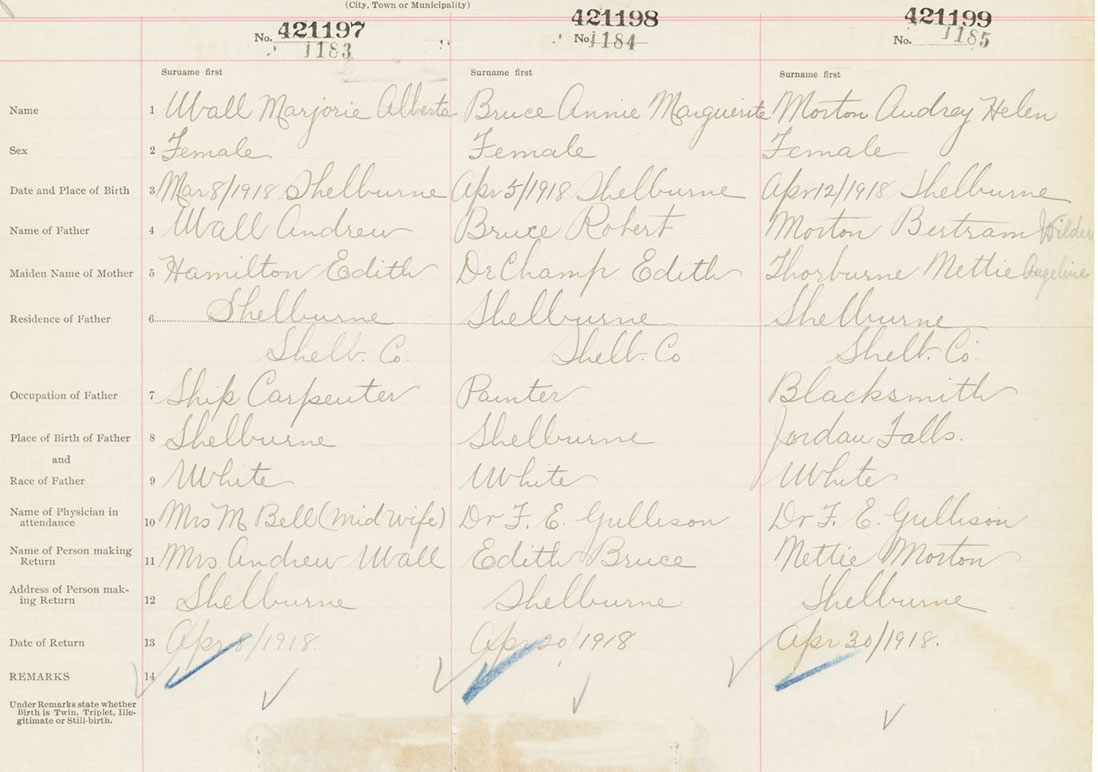 (City, Town or Municipality)
No. 421197 No. 421198 No. 421199
1183 1184 1185
Surname first Surname first Surname first
Name 1 Wall Marjorie Alberta Bruce Annie Marguerite Morton Audrey Helen
Sex 2 Female Female Female
Date and Place of Birth 3 Mar 8/1918 Shelburne Apr 5/1918 Shelburne Apr 12/1918 Shelburne
Name of Father 4 Wall Andrew Bruce Robert Morton Bertram Wilder
Maiden Name of Mother 5 Hamilton Edith DeChamp Edith Thorburne Nettie Angeline
Residence of Father 6 Shelburne Shelburne Shelburne
Shelb. Co. Shelb. Co Shelb. Co.
Occupation of Father 7 Ship Carpenter Painter Blacksmith
Place of Birth of Father 8 Shelburne Shelburne Jordan Falls.
and
Race of Father 9 White White White
Name of Physician in
attendance 10 Mrs M Bell (midwife) Dr F. E. Gullison Dr F. E. Gullison
Name of Person making
Return 11 Mrs Andrew Wall Edith Bruce Nettie Morton
Address of Person mak-
ing Return 12 Shelburne Shelburne Shelburne
Date of Return 13 Apr 8/1918. Apr 20/1918 Apr 30/1918.
REMARKS 14
Under Remarks state whether
Birth is Twin, Triplet, Ille-
gitimate or Still-birth.